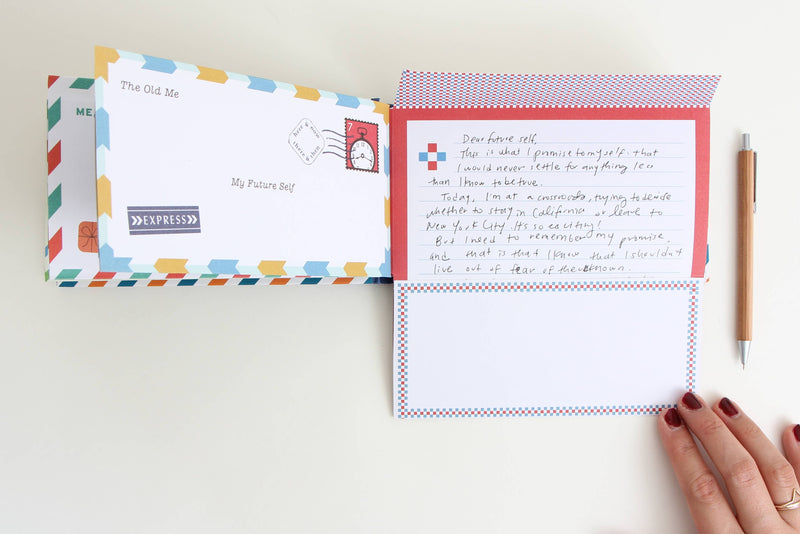 ME
The Old Me
here & now
there & then
7
My Future Self
EXPRESS
Dear future self,
This is what I promise to myself: that
I would never settle for anything less
than I know to be true.
Today, I'm at a crossroads, trying to decide
whether to stay in California or leave to
New York City. It's so exciting!
But I need to remember my promise,
and that is that I know that I shouldn't
live out of fear of the unknown.